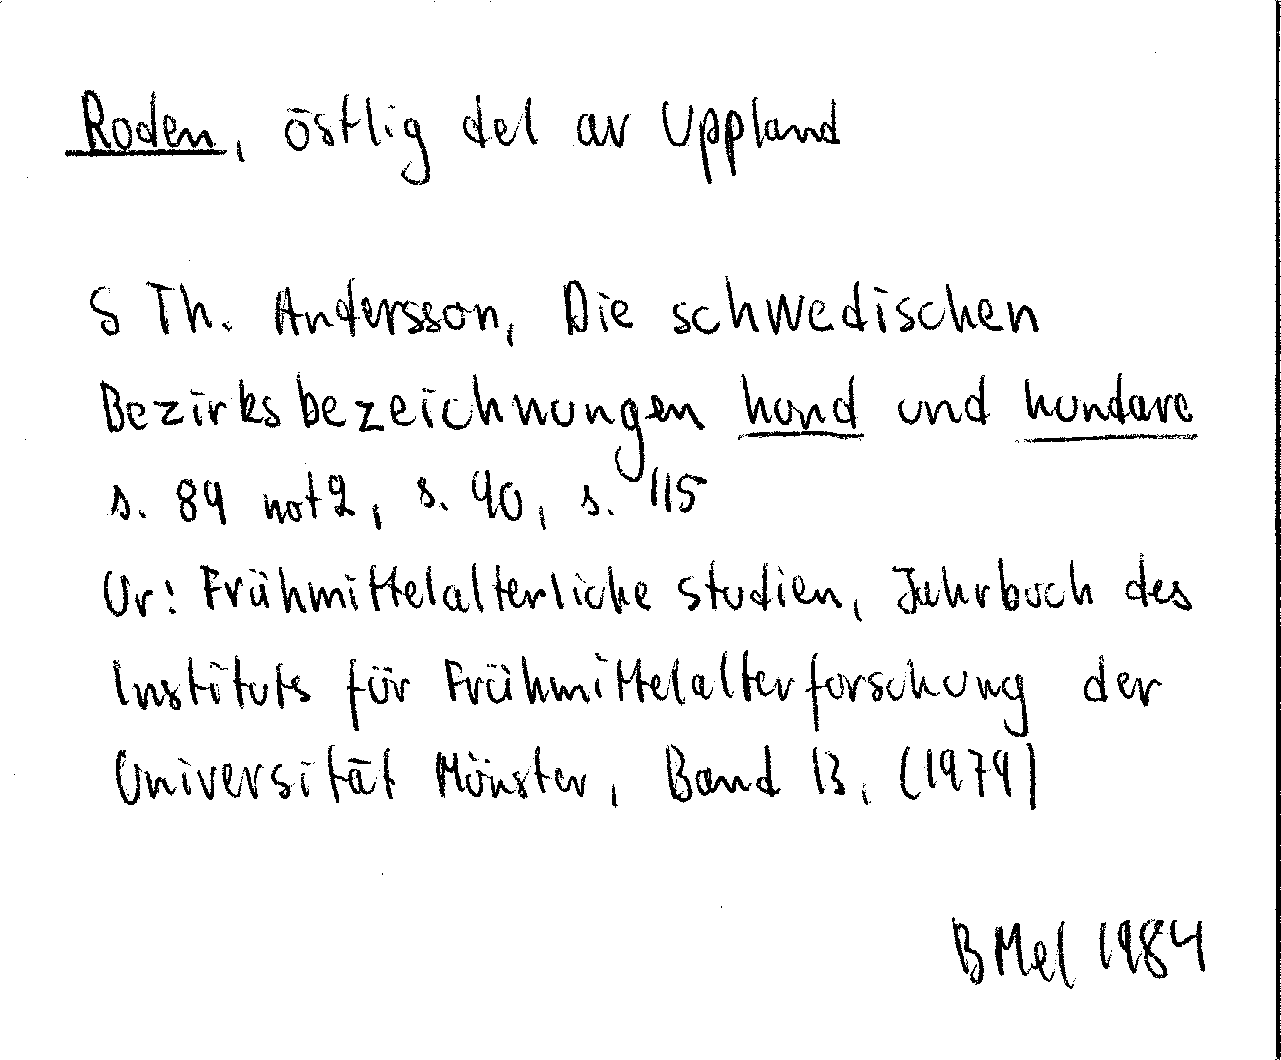 Roden, östlig del av Uppland
S Th. Andersson, Die schwedischen
Bezirksbezeichnungen hund und hundare
s. 89 not 2, s. 90, s. 115
Ur: Frühmittelalterliche Studien, Jahrbuch des
Instituts für Frühmittelalterforschung der
Universität Münster, Band 13, (1979)
BMel 1984